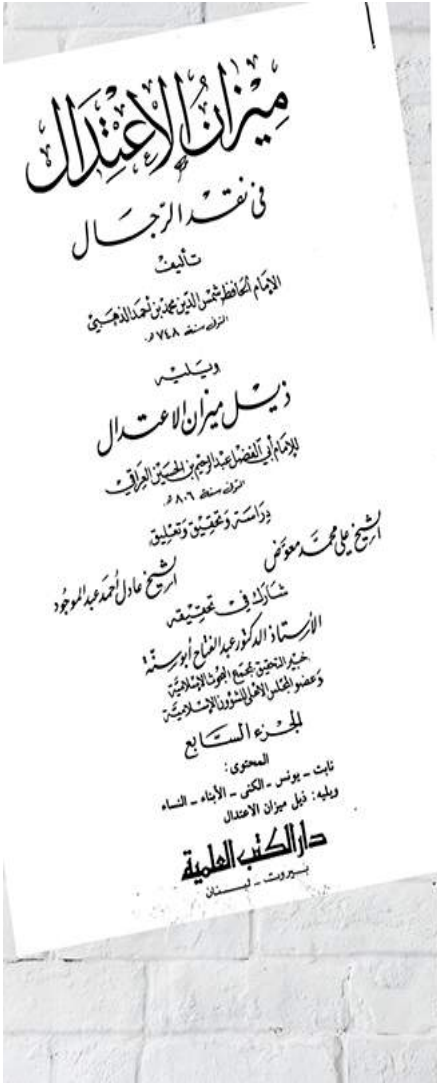 مِيزَانُ الاِعْتِدَالِ
في نقد الرجال
تأليف
الإمام الحافظ شمس الدين محمد بن أحمد الذهبي
المتوفى سنة ٧٤٨ هـ
ويليه
ذيل ميزان الاعتدال
للإمام أبي الفضل عبد الرحيم بن الحسين العراقي
المتوفى سنة ٨٠٦ هـ
دراسة وتحقيق وتعليق
الشيخ علي محمد معوض الشيخ عادل أحمد عبد الموجود
شارك في تحقيقه
الأستاذ الدكتور عبد الفتاح أبو سنة
خبير التحقيق بمجمع البحوث الإسلامية
وعضو المجلس الأعلى للشؤون الإسلامية
الجزء السابع
المحتوى:
نابت - يونس - الكنى - الأبناء - النساء
ويليه: ذيل ميزان الاعتدال
دار الكتب العلمية
بيروت - لبنان